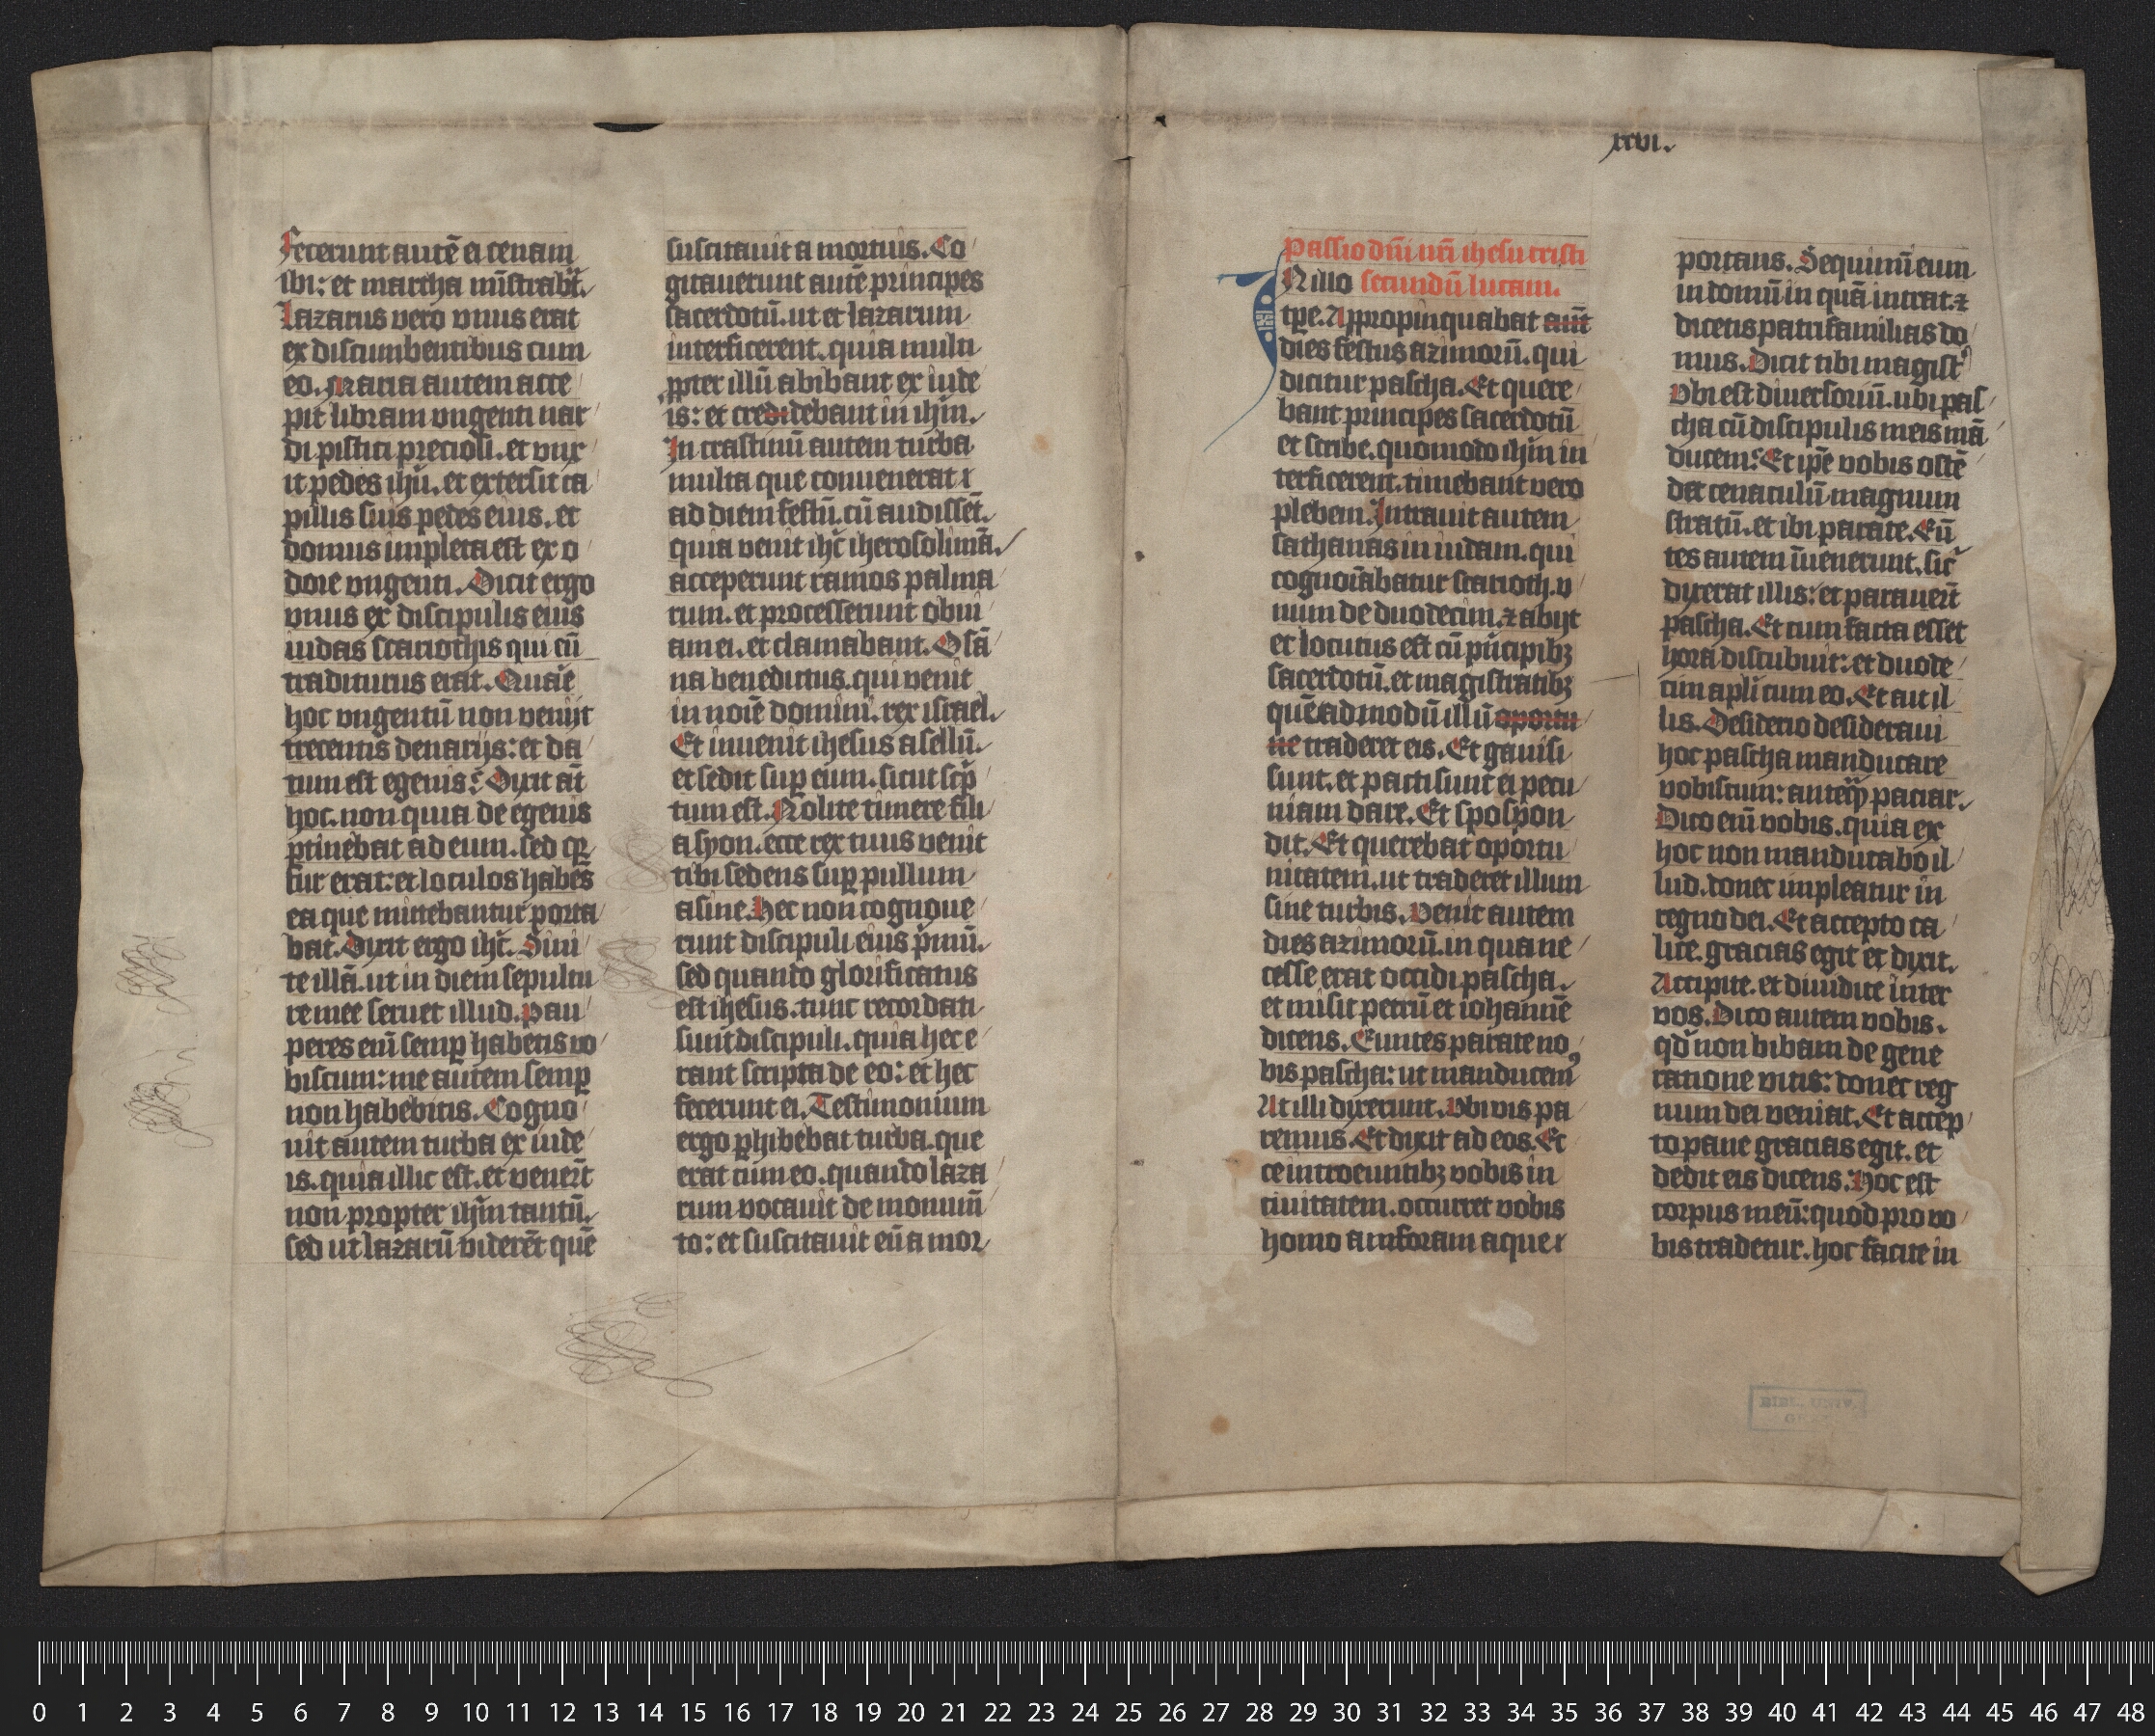 Fecerunt autē ei cenam
ibi: et martha mīstrabāt.
Lazarus vero vnus erat
ex discumbentibus cum
eo. Maria autem acce
pit libram vngenti nar
di pistici preciosi. et vnx
it pedes ihū. et extersit ca
pillis suis pedes eius. et
domus impleta est ex o
dore vngenti. Dicit ergo
vnus ex discipulis eius
iudas scariothis qui cū
traditurus erat. Quare
hoc vngentū non venijt
trecentis denarijs: et da
tum est egenis? Dixit aūt
hoc. non quia de egenis
ꝑtinebat ad eum. sed qꝛ
fur erat: et loculos habēs
ea que mittebantur porta
bat. Dixit ergo ihc̄. Sini
te illā. ut in diem sepultu
re mee seruet illud. Pau
peres enī semꝑ habetis vo
biscum: me autem semꝑ
non habebitis. Cogno
uit autem turba ex iude
is. quia illic est. et venerūt
non propter ihm̄ tantū.
sed ut lazarū viderēt quē
suscitauit a mortuis. Co
gitauerunt autē principes
sacerdotū. ut et lazarum
interficerent. quia multi
ꝓpter illū abibant ex iude
is: et credidebant in ihm̄.
In crastinū autem turba
multa que conuenerat
ad diem festū. cū audissēt.
quia venit ihc̄ iherosolimā.
acceperunt ramos palma
rum. et processerunt obui
am ei. et clamabant. Osā
na benedictus. qui venit
in noīe domini. rex israel.
Et inuenit ihesus asellū.
et sedit suꝑ eum. sicut scͥp
tum est. Nolite timere fili
a syon. ecce rex tuus venit
tibi sedens suꝑ pullum
asine. Hec non cognoue
runt discipuli eius pͥmū.
sed quando glorificatus
est ihesus. tunc recordati
sunt discipuli. quia hec e
rant scripta de eo: et hec
fecerunt ei. Testimonium
ergo ꝑhibebat turba. que
erat cum eo. quando laza
rum vocauit de monumē
to: et suscitauit eū a mor
xxvi.
Passio dn̄i nr̄i ihesu cristi
IN illo secundū lucam.
tp̄e. Appropinquabat aut̄
dies festus azimorū. qui
dicitur pascha. Et quere
bant principes sacerdotū
et scribe. quomodo ihm̄ in
terficerent. timebant vero
plebem. Intrauit autem
sathanas in iudam. qui
cognoīabatur scarioth. v
num de duodecim. ⁊ abijt
et locutus est cū pͥncipibꝫ
sacerdotū. et magistratibꝫ
quēadmodū illū oportu
ne traderet eis. Et gauisi
sunt. et pacti sunt ei pecu
niam dare. Et spospon
dit. Et querebat oportu
nitatem. ut traderet illum
sine turbis. Venit autem
dies azimorū. in qua ne
cesse erat occidi pascha.
et misit petrū et iohannē
dicens. Euntes parate no
bis pascha: ut manducemꝰ
At illi dixerunt. Vbi vis pa
remus. Et dixit ad eos. Ec
ce introeuntibꝫ vobis in
ciuitatem. occurret vobis
homo amforam aque
portans. Sequimī eum
in domū in quā intrat. ⁊
dicetis patrifamilias do
mus. Dicit tibi magistꝰ
Vbi est diuersoriū. ubi pas
cha cū discipulis meis mā
ducem? Et ip̄e vobis ostē
det cenaculū magnum
stratū. et ibi parate. Eū
tes autem īuenerunt. sic̄
dixerat illis: et parauerūt
pascha. Et cum facta esset
hora discubuit: et duode
cim apl̄i cum eo. Et ait il
lis. Desiderio desideraui
hoc pascha manducare
vobiscum: anteqͣꝫ paciar.
Dico enī vobis. quia ex
hoc non manducabo il
lud. donec impleatur in
regno dei. Et accepto ca
lice. gracias egit et dixit.
Accipite. et diuidite inter
vos. Dico autem vobis.
qd̄ non bibam de gene
ratione vitis: donec reg
num dei veniat. Et accep
to pane gracias egit. et
dedit eis dicens. Hoc est
corpus meū: quod pro vo
bis tradetur. hoc facite in
BIBL. UNIV.